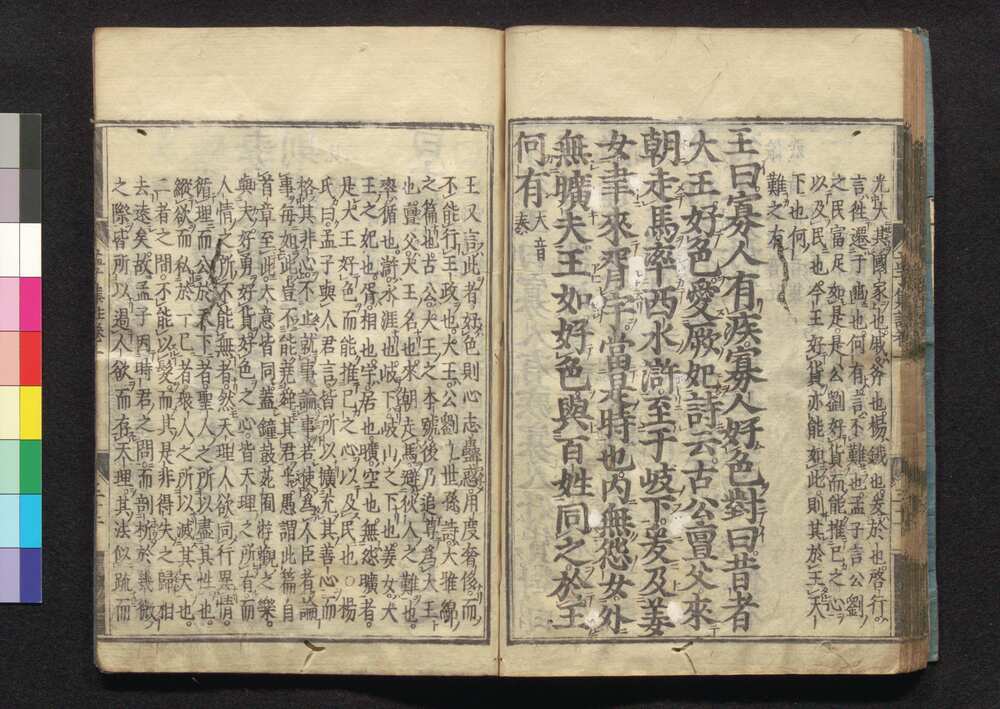 光大其國家也戚斧也揚鉞也爰於也啓行
言往遷于豳也何有言不難也孟子言公劉
之民富足如是是公劉好貨而能推已之心
以及民也今王好貨亦能如此則其於王天
下也何
難之有
王曰寡人有疾寡人好色對曰昔者
大王好色愛厥妃詩云古公亶父來
朝走馬率西水滸至于岐下爰及姜
女聿來胥宇當是時也内無怨女外
無曠夫王如好色與百姓同之於王
何有大音泰
王又言此者好色則心志蠱惑用度奢侈而
不能行王政也大王公劉九世孫詩大雅綿
之篇也古公大王之本號後乃追尊爲大王
也亶父大王名也來朝走馬避狄人之難也
率循也滸水涯也岐下岐山之下也姜女大
王之妃也胥相也宇居也曠空也無怨曠者
是大王好色而能推已之心以及民也○楊
氏曰孟子與人君言皆所以擴充其善心而
格其非心不止就事論事若使爲人臣者論
事每如此豈不能堯舜其君乎愚謂此篇自
首章至此大意皆同蓋鐘鼓苑囿游觀之樂
與夫好勇好貨好色之心皆天理之所有而
人情之所不能無者然天理人欲同行異情
循理而公於天下者聖人之所以盡其性也
縱欲而私於一已者衆人之所以滅其天也
二者之間不能以髮而其是非得失之歸相
去遠矣故孟子因時君之問而剖析於幾微
之際皆所以遏人欲而存天理其法似疏而